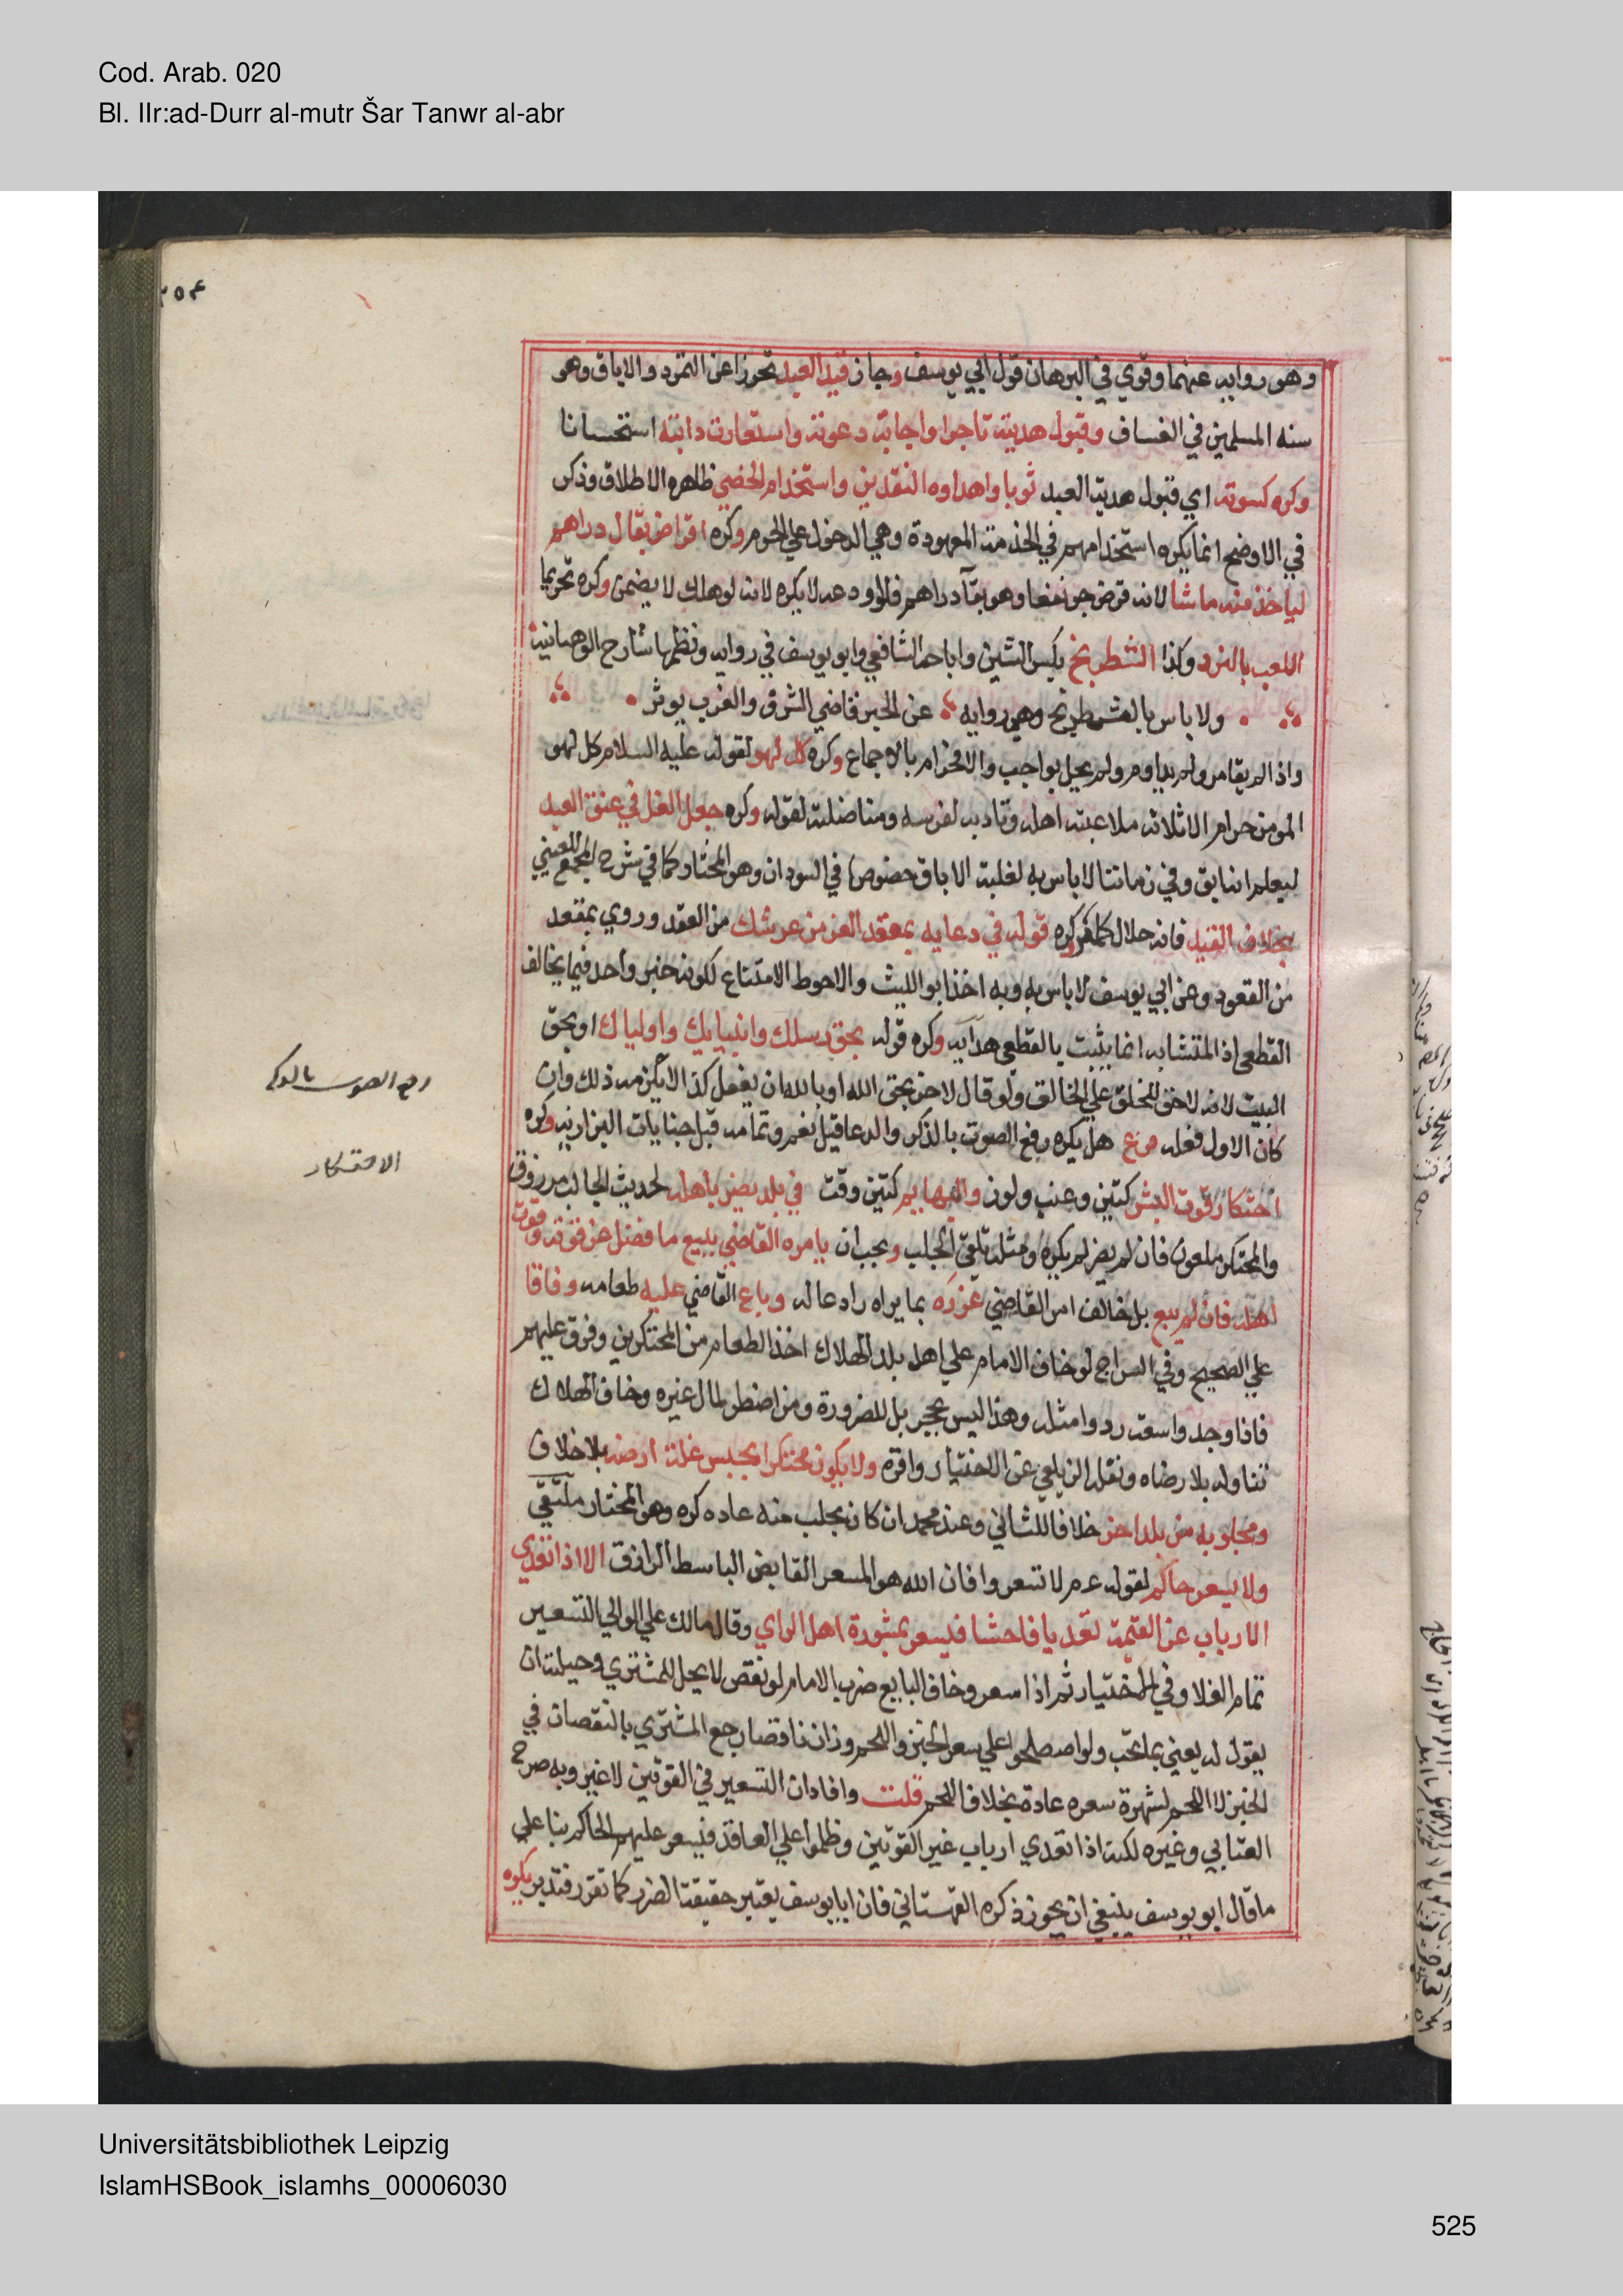 Cod. Arab. 020
Bl. IIr:ad-Durr al-mutr Šar Tanwr al-abr
وهو روايه عنهما وقوي في البرهان قول ابي يوسف وجاز قيد العبد تحرزا عن التمرد والاباق وهو
سنه المسلمين في الفساق وقبول هديته تاجرا واجابة دعوته واستعارت دابته استحسانا
وكره كسوته اي قبول هدية العبد ثوبا واهداوه النقدين واستخدام الخصي ظاهره الاطلاق وذكر
في الاوضح انما يكره استخدامهم في الخدمة المعهودة وهي الدخول علي الحرم وكره اقراض بقال دراهم
لياخذ منه ما شا لانه قرض جر نفعا وهو بقآ دراهم فلو اودعه لا يكره لانه لو هلك لا يضمن وكره تحريما
اللعب بالنرد وكذا الشطرنج بكسر الشين واباحه الشافعي وابو يوسف في روايه ونظمها شارح الوهبانية
ولا باس بالشطرنج وهي روايه عن الحبر قاضي الشرق والغرب يوثر
واذا لم يقامر ولم يداوم ولم يخل بواجب والا فحرام بالاجماع وكره كل لهو لقوله عليه السلام كل لهو
المومن حرام الا ثلاثه ملاعبته اهله وتاديبه لفرسه ومناضلته لقوله وكره جعل الغل في عنق العبد
ليعلم انه ابق وفي زماننا لا باس به لغلبة الاباق خصوصا في السودان وهو المختار كما في شرح المجمع للعيني
بخلاف القيد فانه حلال كما مر كره قوله في دعايه بمعقد العز من عرشك من العقد وروي بمقعد
من القعود وعن ابي يوسف لا باس به وبه اخذ ابو الليث والاحوط الامتناع لكونه خبر واحد فيما يخالف
القطعي اذ المتشابه انما يثبت بالقطعي هدايه وكره قوله بحق رسلك وانبيايك واولياك او بحق
البيت لانه لا حق للخلق علي الخالق ولو قال لاخر بحق الله او بالله ان يفعل كذا لا يلزمه ذلك وان
كان الاولي فعله فرع هل يكره رفع الصوت بالذكر والدعا قيل نعم وتمامه قبل جنايات البزازيه وكره
احتكار قوت البشر كتين وعنب ولوز والبهايم كتبن وقت في بلد يضر باهله لحديث الجالب مرزوق
والمحتكر ملعون فان لم يضر لم يكره ومثله تلقي الجلب ويجب ان يامره القاضي ببيع ما فضل عن قوته وقوت
اهله فان لم يبع بل خالف امر القاضي عزره بما يراه رادعا له وباع القاضي عليه طعامه وفاقا
علي الصحيح وفي السراج لو خاف الامام علي اهل بلد الهلاك اخذ الطعام من المحتكرين وفرق عليهم
فاذا وجد واسعة ردوا مثله وهذا ليس بحجر بل للضرورة ومن اضطر لمال غيره وخاف الهلاك
تناوله بلا رضاه ونقله الزيلعي عن الاختيار واقره ولا يكون محتكرا بحبس غلة ارضه بلا خلاف
ومجلوبه من بلد اخر خلافا للثاني وعند محمد ان كان يجلب منه عاده كره وهو المختار ملتقي
ولا يسعر حاكم لقوله عم لا تسعروا فان الله هو المسعر القابض الباسط الرازق الا اذا تعدي
الارباب عن القيمة تعديا فاحشا فيسعر بمشورة اهل الراي وقال مالك علي الوالي التسعير
عام الغلا وفي الاختيار ثم اذا سعر وخاف البايع ضرب الامام لو نقص لا يحل للمشتري وحيلته ان
يقول له بعني بما تحب ولو اصطلحوا علي سعر الخبز واللحم وزان ناقصا رجع المشتري بالنقصان في
الخبز لا اللحم لشهرة سعره عادة بخلاف اللحم قلت وافاد ان التسعير في القوتين لا غير وبه صرح
العتابي وغيره لكنه اذا تعدي ارباب غير القوتين وظلموا علي العاقد فيسعر عليهم الحاكم بنا علي
ما قال ابو يوسف ينبغي ان يجوز ذكره القهستاني فان ابا يوسف يعتبر حقيقة الضرر كما تقرر فتدبر يكره
رفع الصوت بالذكر
الاحتكار
Universitätsbibliothek Leipzig
IslamHSBook_islamhs_00006030
525